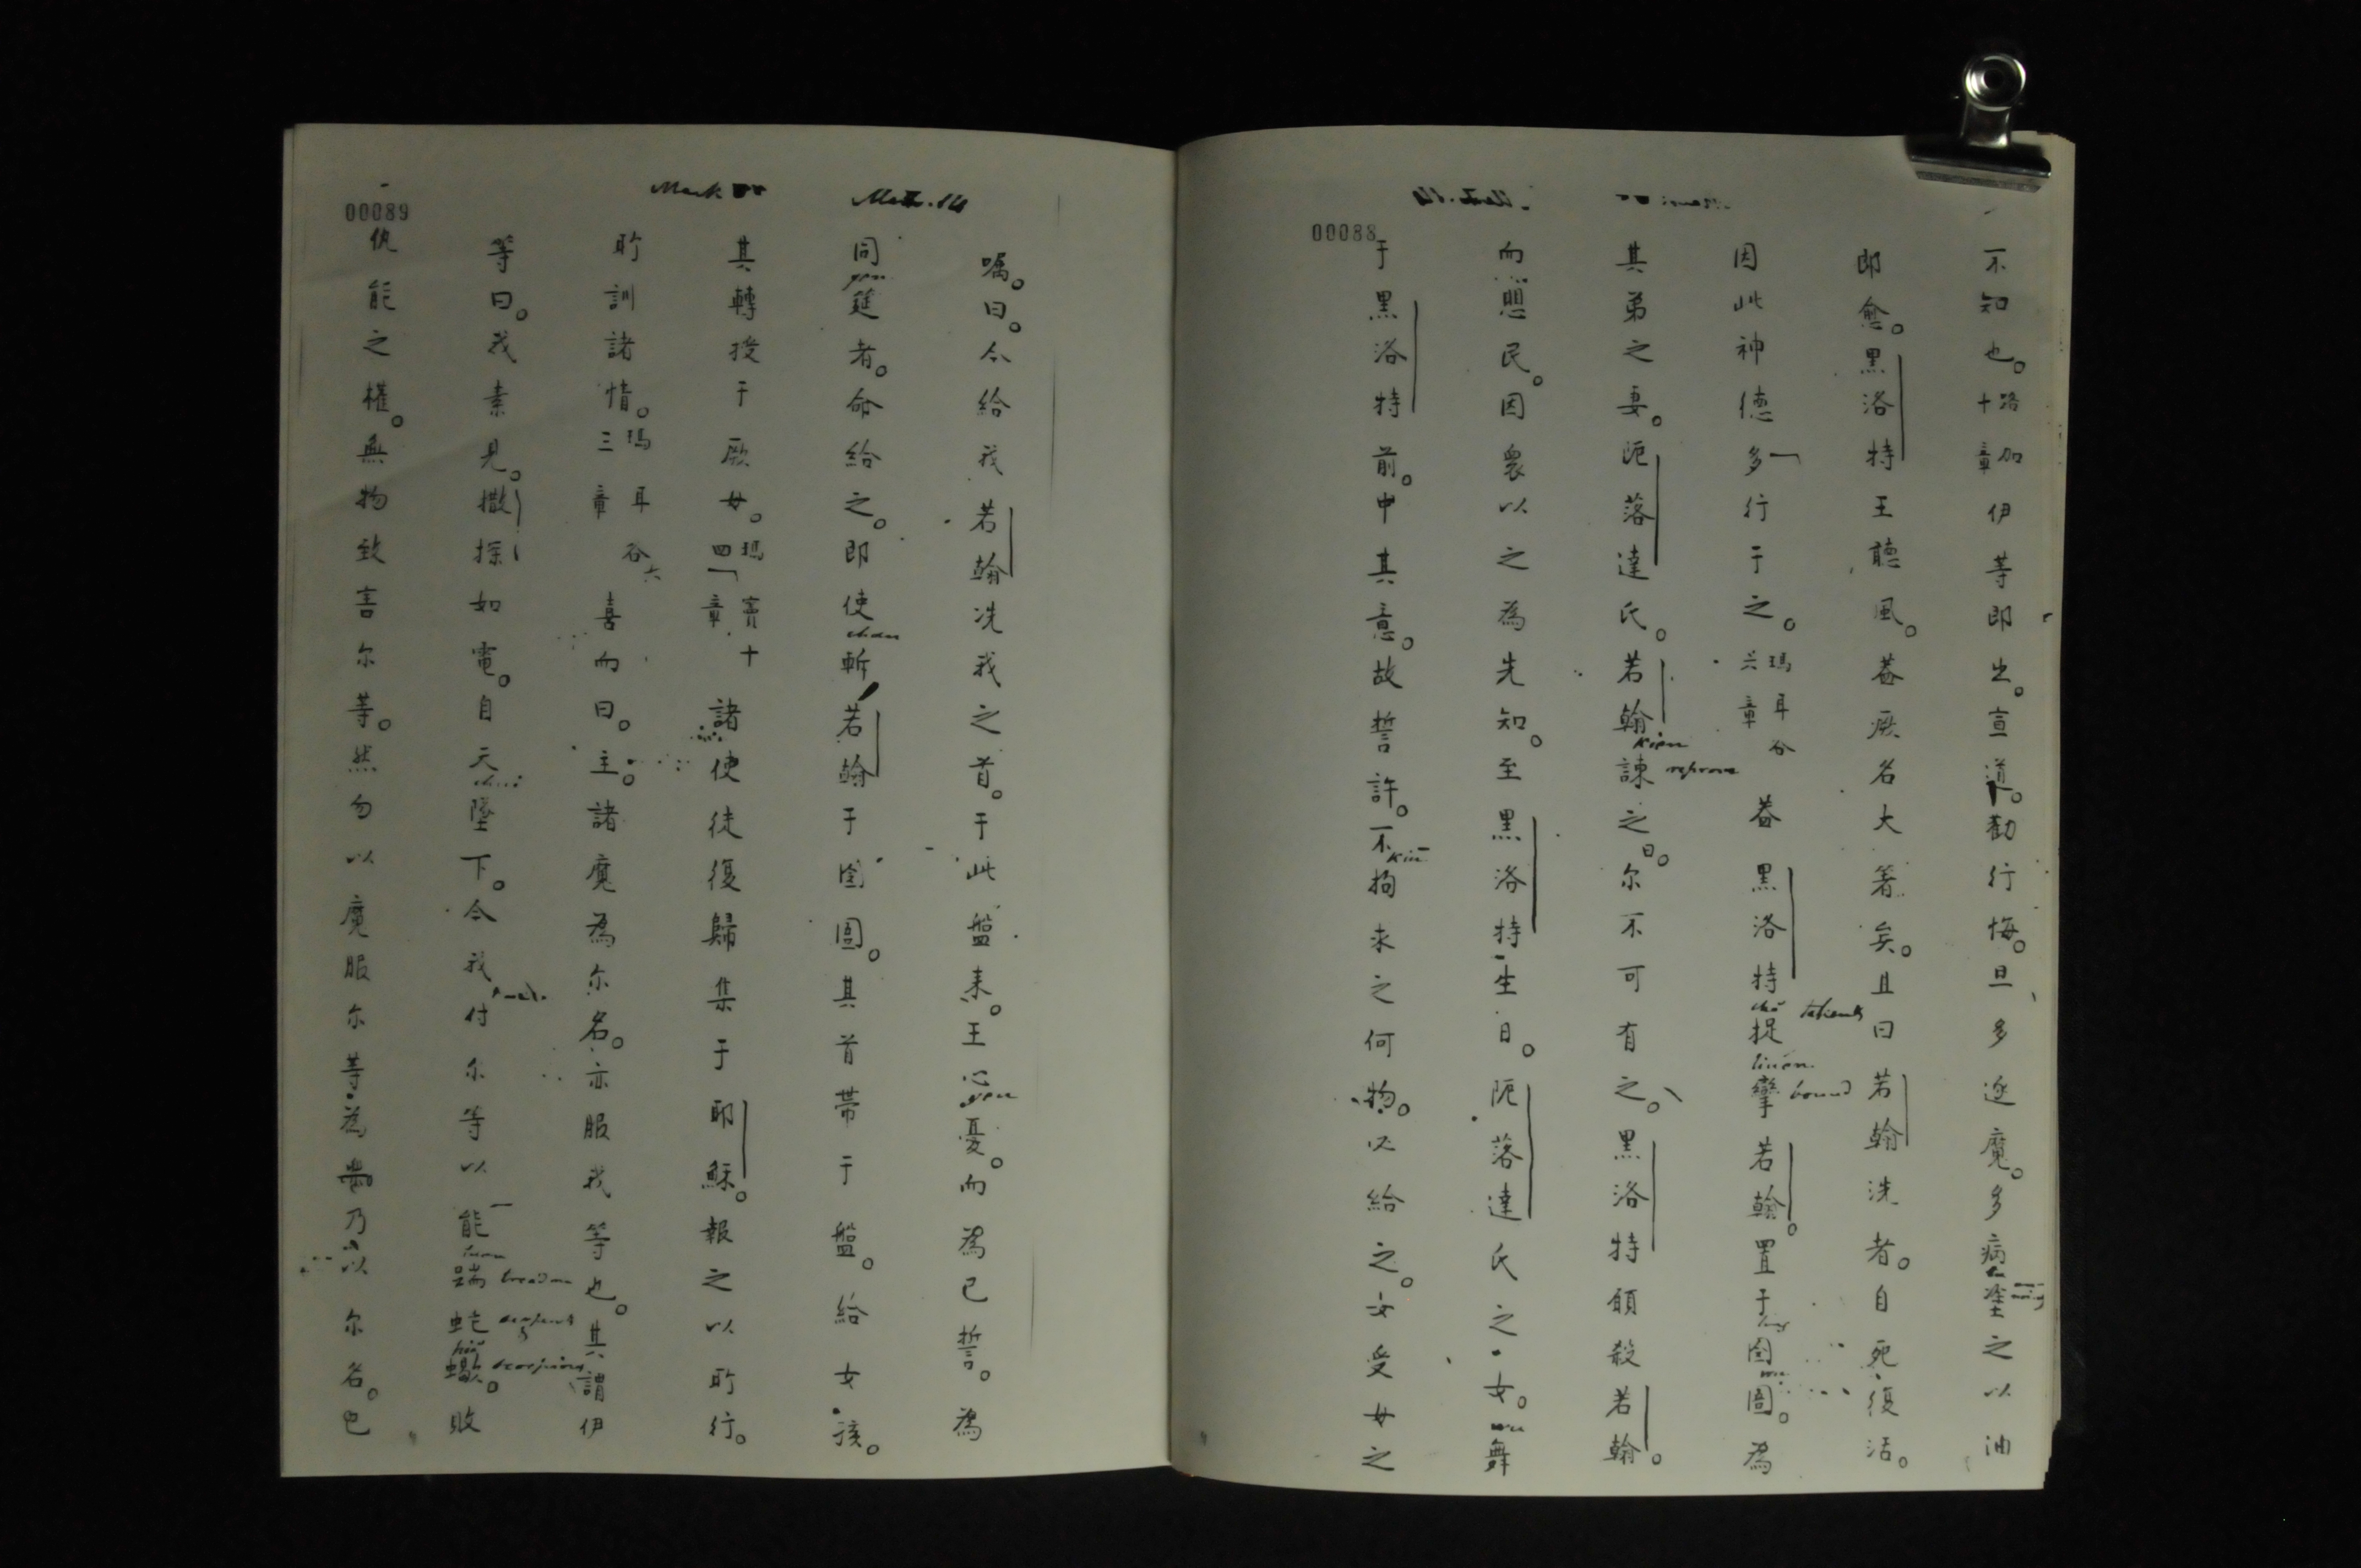 00088
不知也。路加十章伊等即出。宣道。勸行悔。且多逐魔。多病塗之以油
即愈。黑洛特王聽風。蓋厥名大著矣。且曰若翰洗者。自死復活。
因此神德多行于之。瑪耳谷六章蓋黑洛特捉攣若翰。置于囹圄。為
其弟之妻。阨落達氏。若翰諫之曰。尔不可有之。黑洛特願殺若翰。
而思民。因衆以之為先知。至黑洛特生日。阨落達氏之女。舞
于黑洛特前。中其意。故誓許。不拘求之何物。必給之。女受母之
Mark
Mat. 14
00089
囑。曰。今給我若翰洗我之首。于此盤来。王心憂。而為已誓。為
同筵者。命給之。即使斬若翰于囹圄。其首帶于盤。給女孩。
其轉授于厥母。瑪竇十四章諸使徒復歸集于耶穌。報之以所行。
所訓諸情。瑪耳谷六三章喜而曰。主。諸魔為尔名。亦服我等也。其謂伊
等曰。我素見。撒探如電。自天墜下。今我付尔等以能踹蛇蠍。敗
仇能之權。無物致害尔等。然勿以魔服尔等為乃以尔名。已
kien
reprove
chan
bound
serpent
scorpions